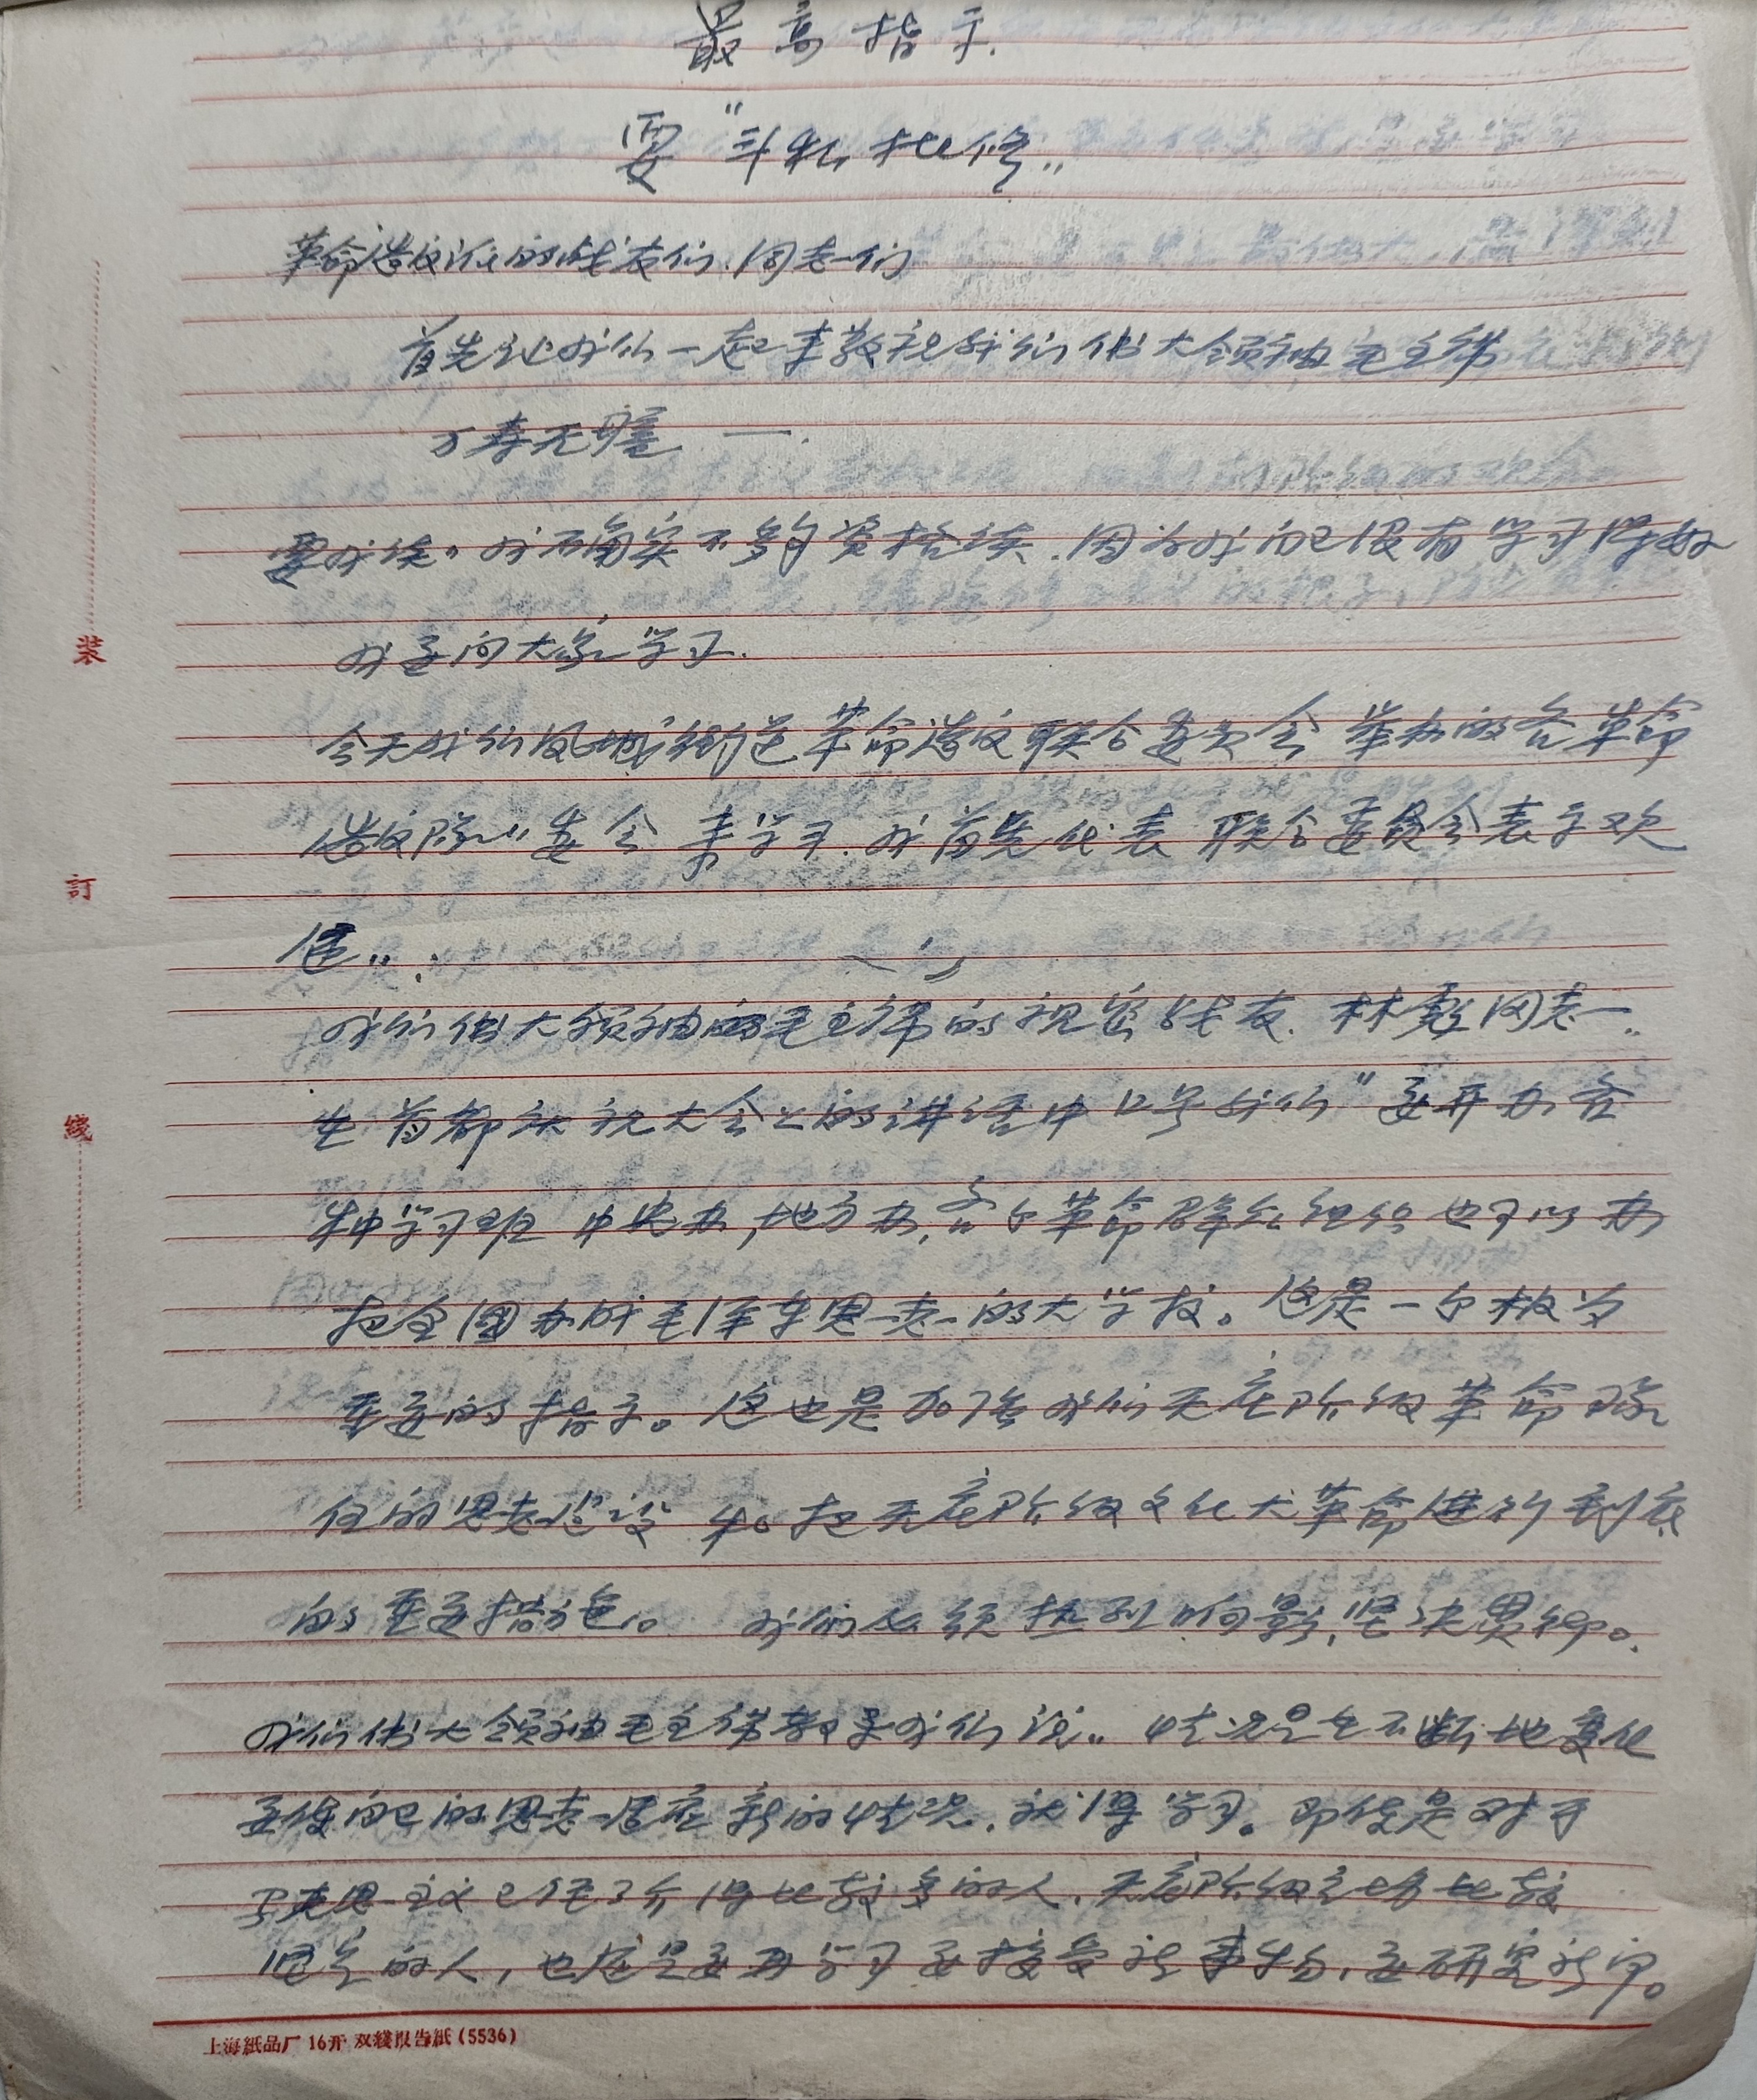 最高指示.
要"斗私批修"
革命造反派的战友们.同志们
首先让我们一起来敬祝我们伟大领袖毛主席
万寿无疆 一.
要我谈"我不确实不够资格谈.因为我自己没有学习得好
我要向大家学习.
今天我们凤城街道革命造反联合委员会举办的各革命
造反队"委会来学习.我首先代表联合委员会表示欢
迎"
我们伟大领袖的毛主席的视密战友.林彪同志一"
在首都庆祝大会上的讲话中口号我们"要开办各
种学习班 中央办,地方办,各个革命群众组织也可以办
把全国办成毛泽东思想的大学校。这是一个极为
重要的指示。这也是加强我们无产阶级革命队
伍的思想建设 和。把无产阶级文化大革命进行到底
的重要措施。 我们必须热烈响影,坚决贯彻。
我们伟大领袖毛主席教导我们说"情况是在不断地变化
要使自己的思想适应新的情况,就得学习。即使是对于
马克思主义已经了介得比较多的人,无产阶级立场比较
坚定的人,也还是要再学习要接受新事物,要研究新问。
装
訂
綫
上海紙品厂 16开 双綫报告紙(5536)